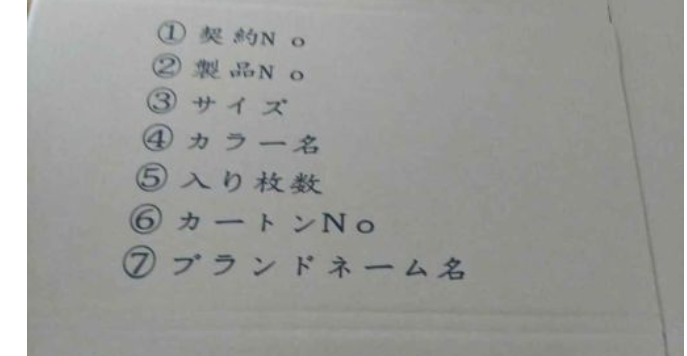 ①契約No
②製品No
③サイズ
④カラー名
⑤入り枚数
⑥カートンNo
⑦ブランドネーム名